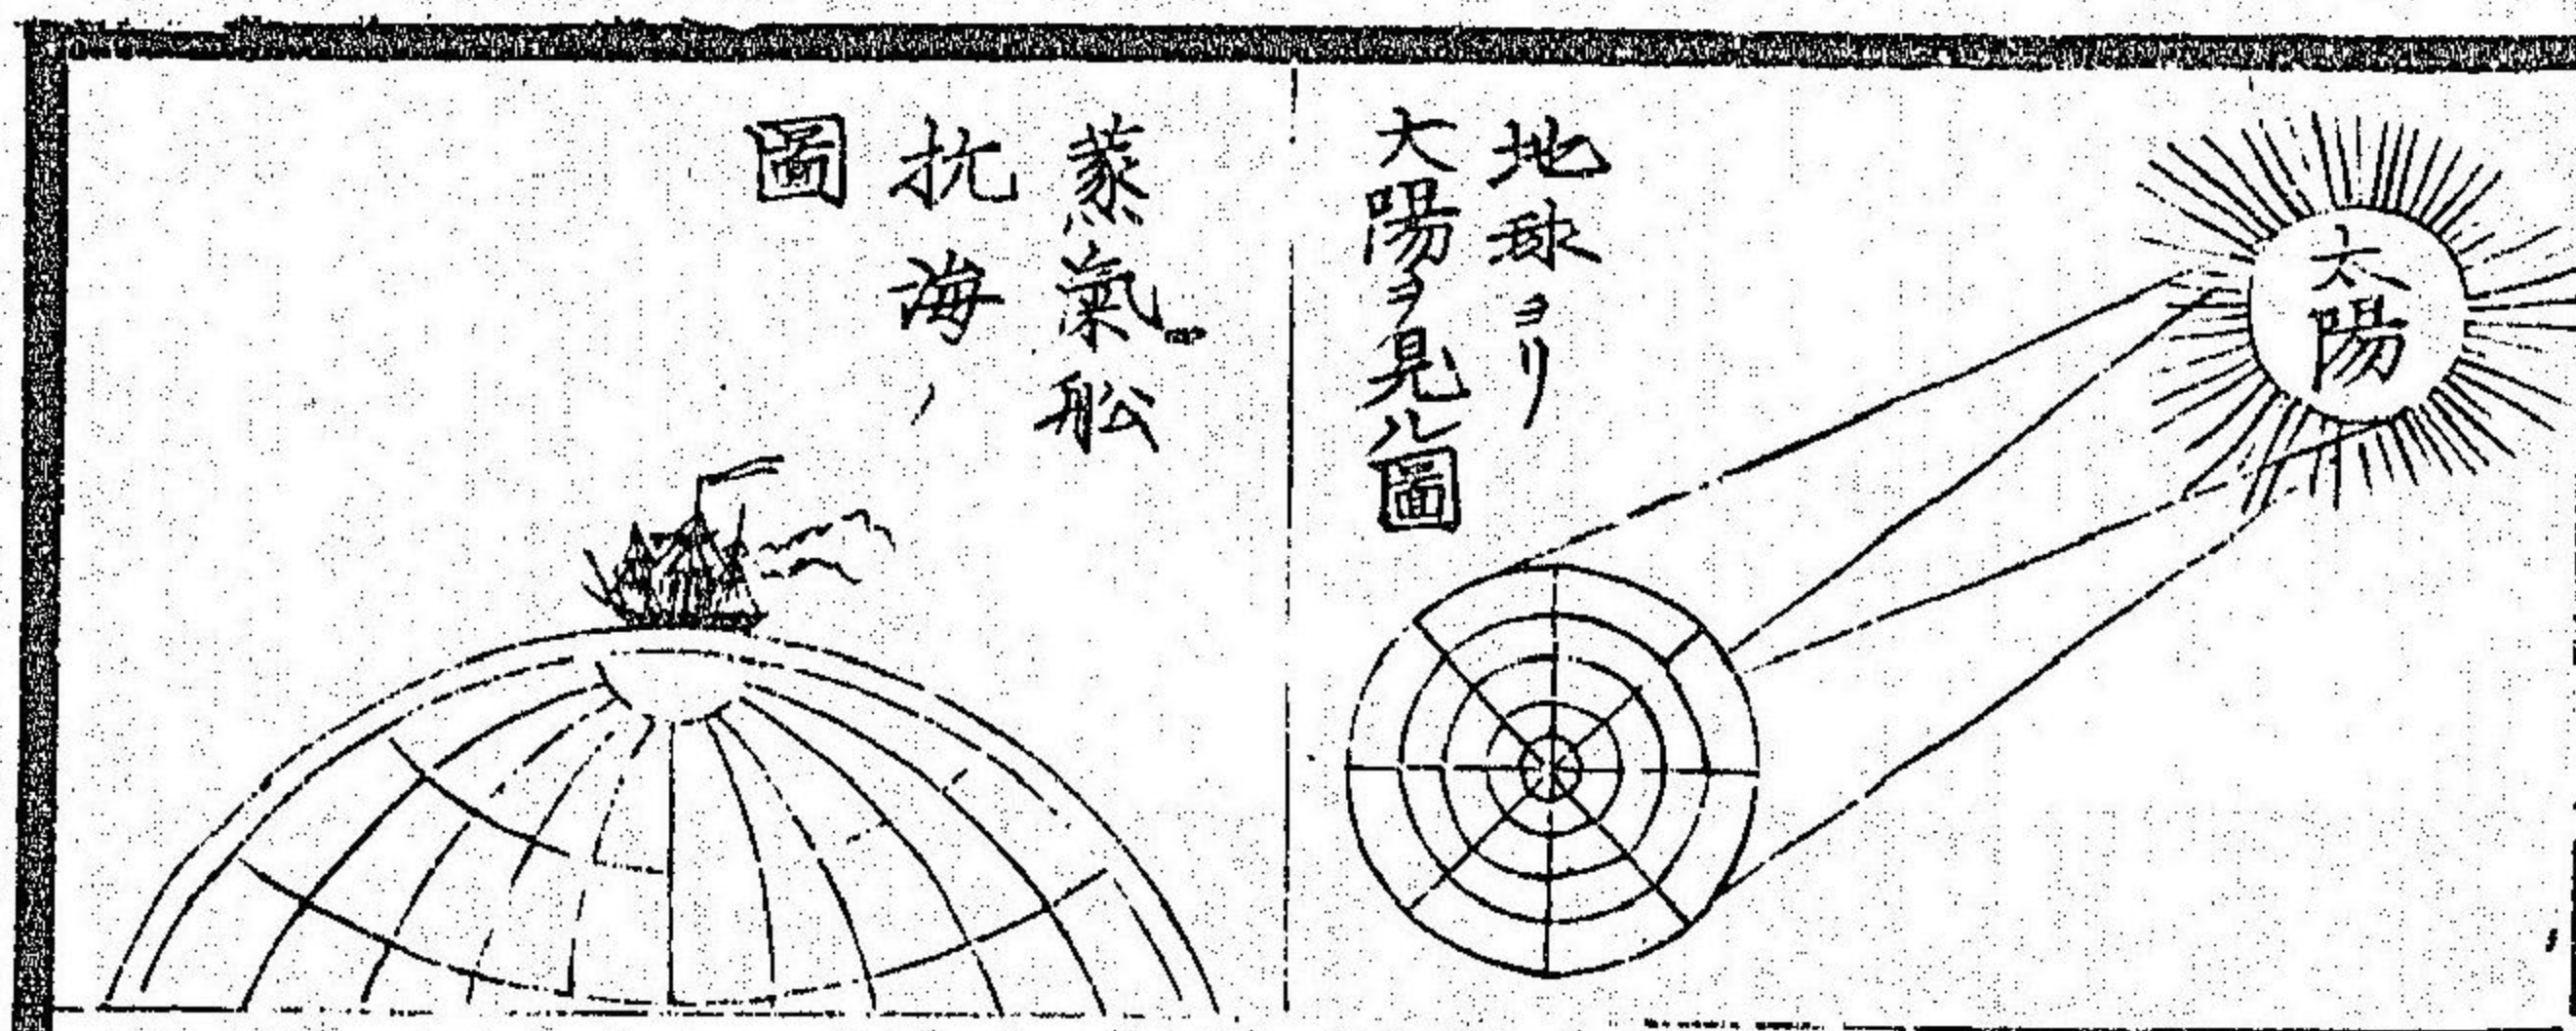 太陽
地球ヨリ
大陽ヲ見ル圖
蒸氣舩
抗海ノ
圖